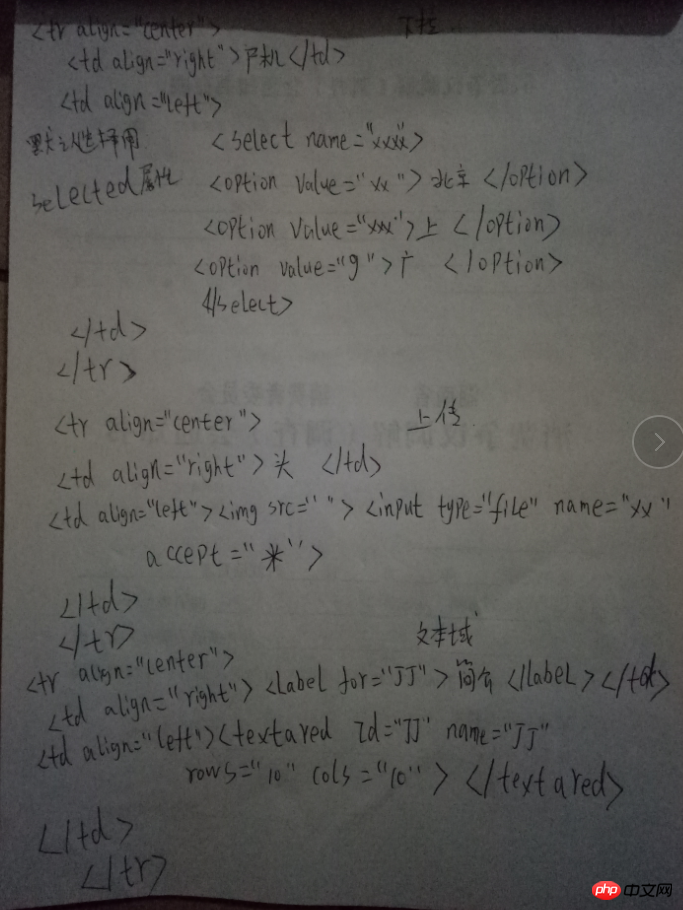 <tr align="center"> 下拉
<td align="right">手机</td>
<td align="left">
默认选择用 <select name="xxxx">
selected属性 <option value="xx">北京</option>
<option value="xxx">上</option>
<option value="g">广 </option>
</select>
</td>
</tr>
<tr align="center"> 上传
<td align="right">头 </td>
<td align="left"><img src=" "> <input type="file" name="xx"
accept="*">
</td>
</tr> 文本域
<tr align="center">
<td align="right"><label for="JJ">简介</label></td>
<td align="left"><textared Id="JJ" name="JJ"
rows="10" cols="10"></textared>
</td>
</tr>
php 中文网